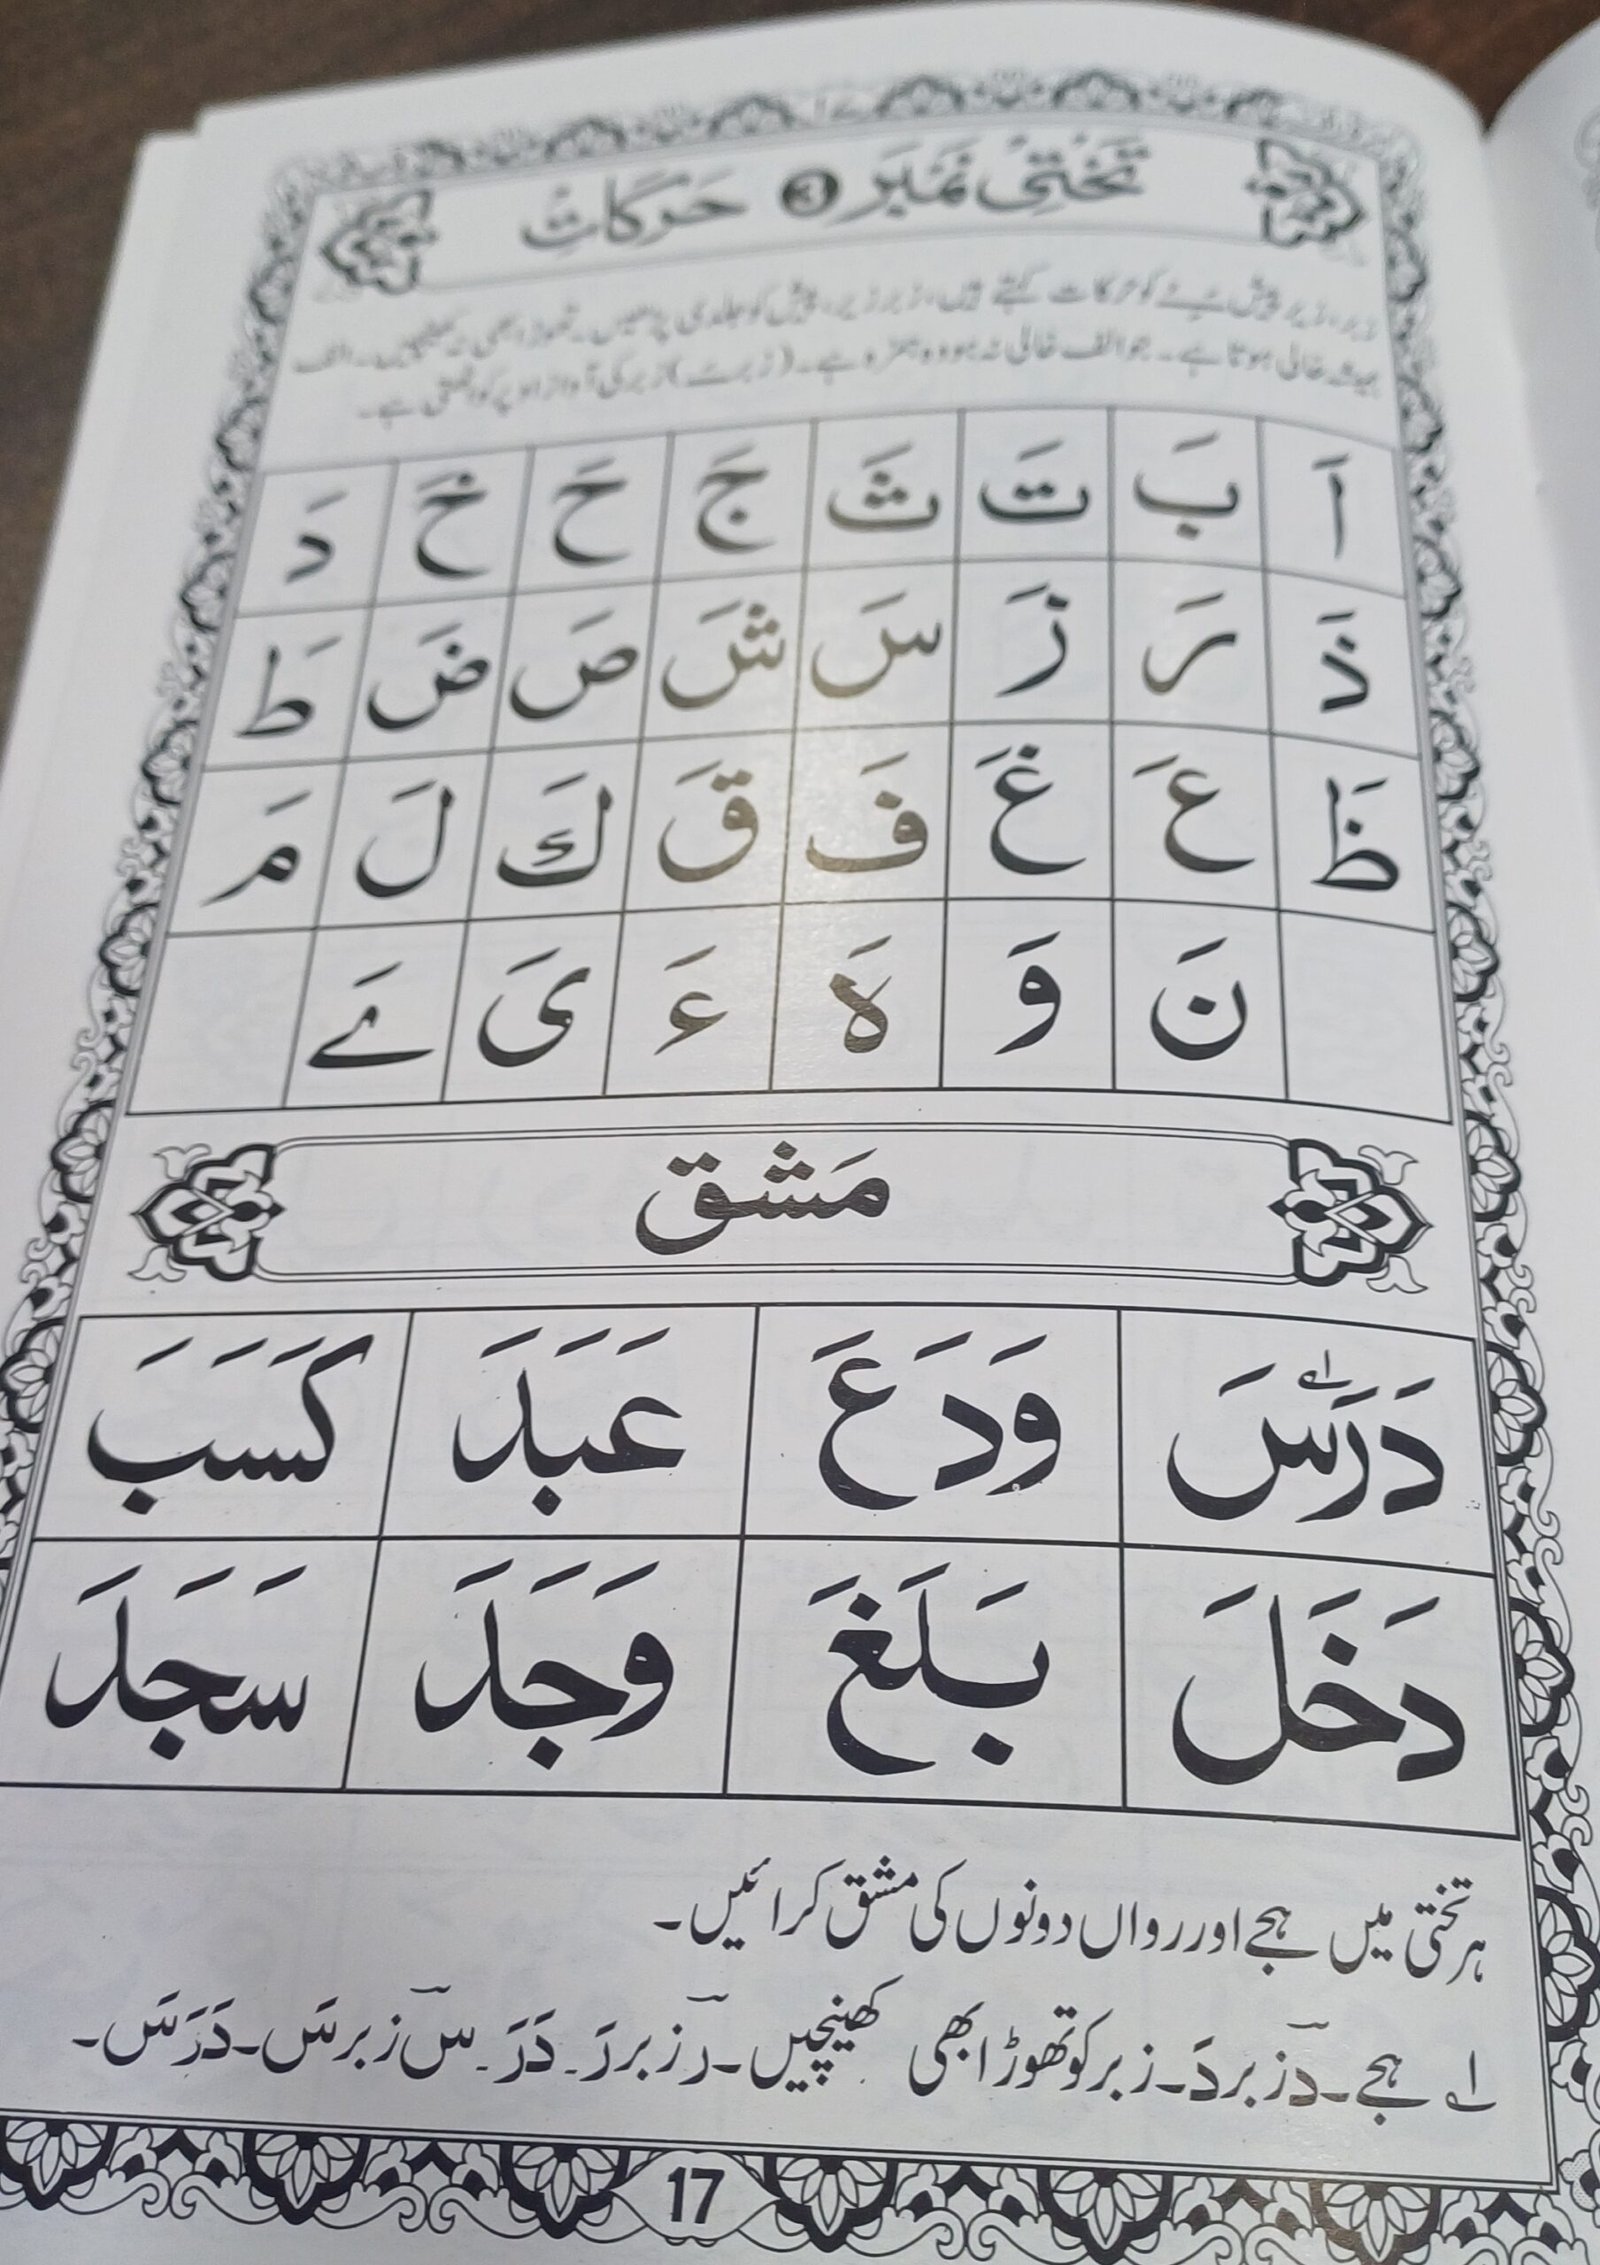 تَخْتِیْ نَمْبَر 3 حَرَکَاتْ
زبر، زیر، پیش ــَـِـُـ کو حرکات کہتے ہیں، زبر زیر، پیش کو جلدی پڑھیں۔ تھوڑا بھی نہ کھینچیں۔ الف
ہمیشہ خالی ہوتا ہے۔ جو الف خالی نہ ہو وہ ہمزہ ہے۔ (زبر ــَـ) زبر کی آواز اوپر کو اٹھتی ہے۔
اَ بَ تَ ثَ جَ حَ خَ دَ
ذَ رَ زَ سَ شَ صَ ضَ طَ
ظَ عَ غَ فَ قَ كَ لَ مَ
نَ وَ هَ ءَ یَ ےَ
مَشق
دَرَسَ ۱ے وَدَعَ عَبَدَ كَسَبَ
دَخَلَ بَلَغَ وَجَدَ سَجَدَ
ہر تختی میں ہجے اور رواں دونوں کی مشق کرائیں۔
۱ے ہجے۔ دٓ زبر دَ۔ زبر کو تھوڑا بھی کھینچیں۔ رٓ زبر رَ۔ دَرَ۔ سٓ زبر سَ۔ دَرَسَ۔
17